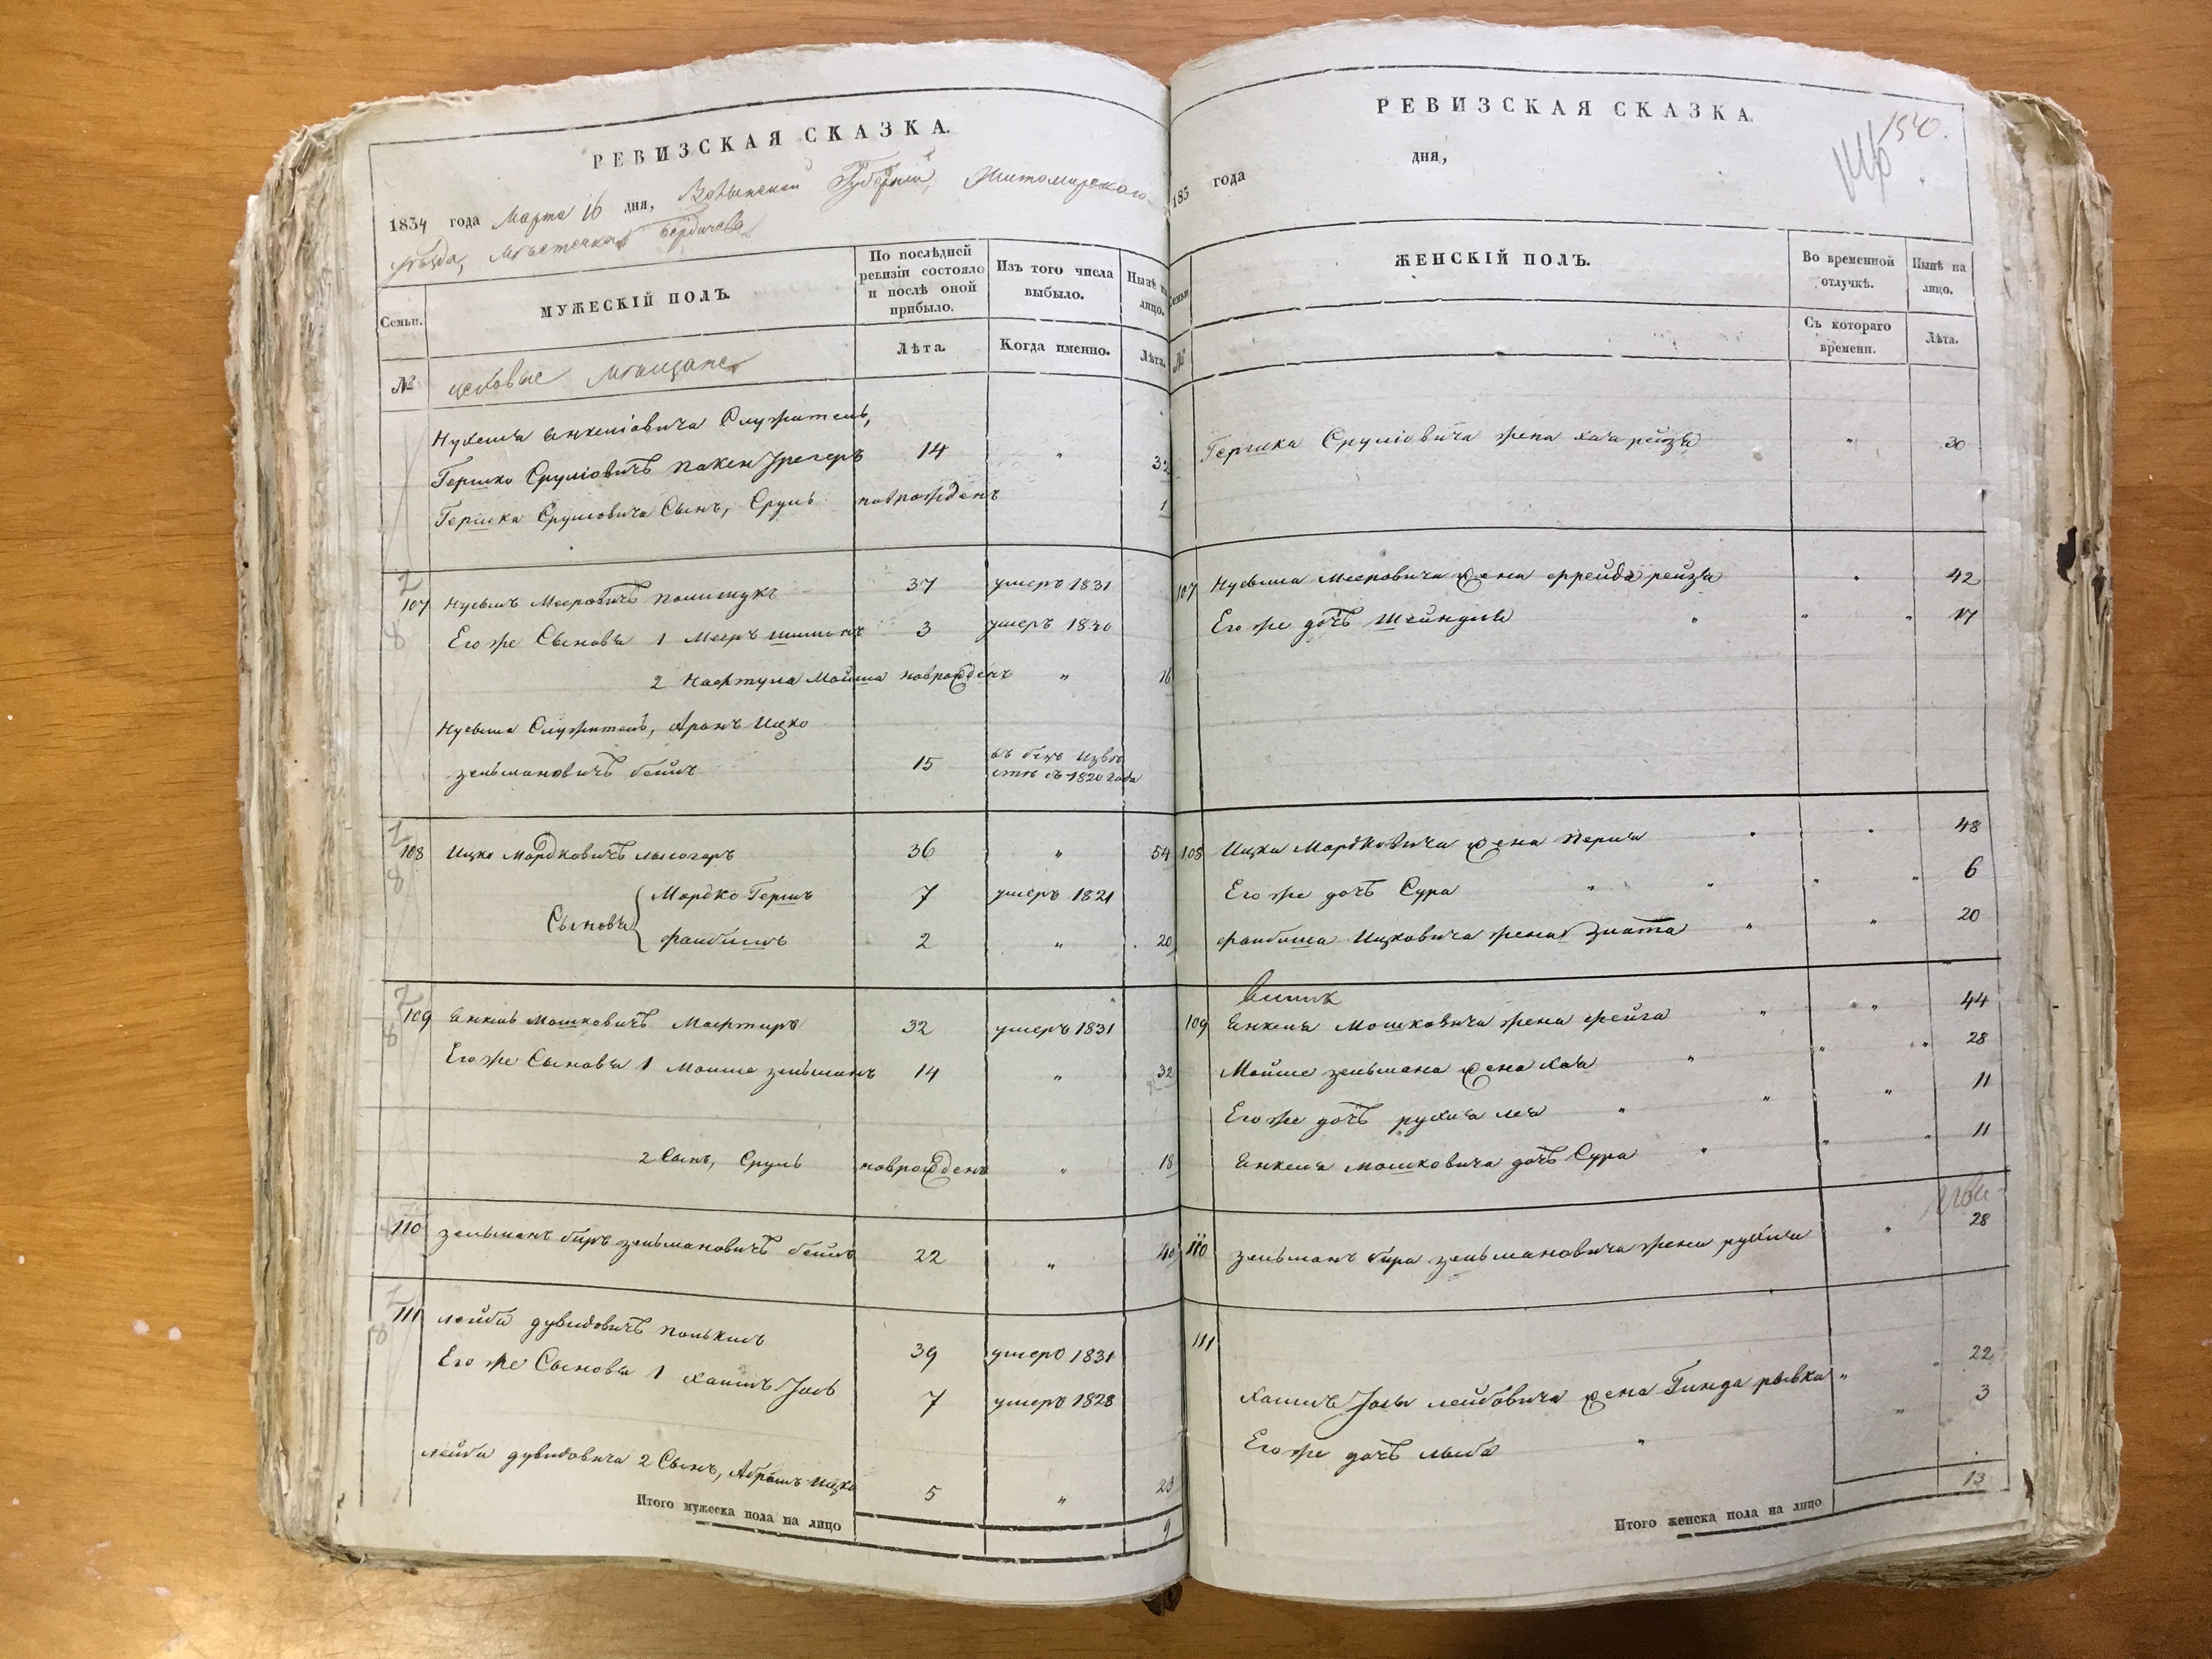 РЕВИЗСКАЯ СКАЗКА.
1834 года Марта 16 дня, Волынской Губернии, Житомирского
уѣзда, мѣстечка Бердичева
Семьи. МУЖЕСКІЙ ПОЛЪ. По послѣдней ревизіи состояло и послѣ оной прибыло. Изъ того числа выбыло. Нынѣ на лицо.
№ цеховые мѣщане Лѣта. Когда именно. Лѣта.
Нухеля Янкеліовича Служитель,
Гершко Сруліовичъ 14 " 32
Гершка Сруліовича Сынъ, Сруль новрожденъ 1
107 Нусынъ Мееровичъ Полищукъ 37 умеръ 1831
Его же Сыновья 1 Мееръ Шимонъ 3 умеръ 1830
2 Нафтула Мойша новрожденъ " 16
Нусына Служитель, Аронъ Ицко
Зельмановичъ 15 въ безъ извѣ
стнѣ съ 1820 года
108 Ицко Мордковичъ 36 " 54
Сыновья Мордко Гершъ 7 умеръ 1821
Файбишъ 2 " 20
109 Янкель Мошковичъ 32 умеръ 1831
Его же Сыновья 1 Мойше Зельманъ 14 " 32
2 Сынъ, Сруль новрожденъ " 18
110 Зельманъ Беръ Зельмановичъ 22 " 40
111 Лейба Дувидовичъ 39 умеръ 1831
Его же Сыновья 1 Хаимъ Іось 7 умеръ 1828
Лейба Дувидовича 2 Сынъ, Абрамъ Ицко 5 " 23
Итого мужеска пола на лицо 9
РЕВИЗСКАЯ СКАЗКА.
540.
183 года дня,
Семьи ЖЕНСКІЙ ПОЛЪ. Во временной отлучкѣ. Нынѣ на лицо.
№ Съ котораго времени. Лѣта.
Гершка Сруліовича жена Хая Рейзя " 30
107 Нусына Мееровича жена Фрейда Рейзя " 42
Его же дочь Шейндля " " " 17
108 Ицка Мордковича жена Перля " " 48
Его же дочь Сура " " " " 6
Файбиша Ицковича жена Злата " " 20
109 Янкеля Мошковича жена Фейга " " 44
Мойше Зельмана жена Хая " " " 28
Его же дочь Рухля Лея " " " 11
Янкеля Мошковича дочь Сура " " " 11
110 Зельманъ Бера Зельмановича жена Рухля " 28
111
Хаимъ Іосы Лейбовича жена Гинда Рывка " " 22
Его же дочь " " 3
Итого женска пола на лицо 13